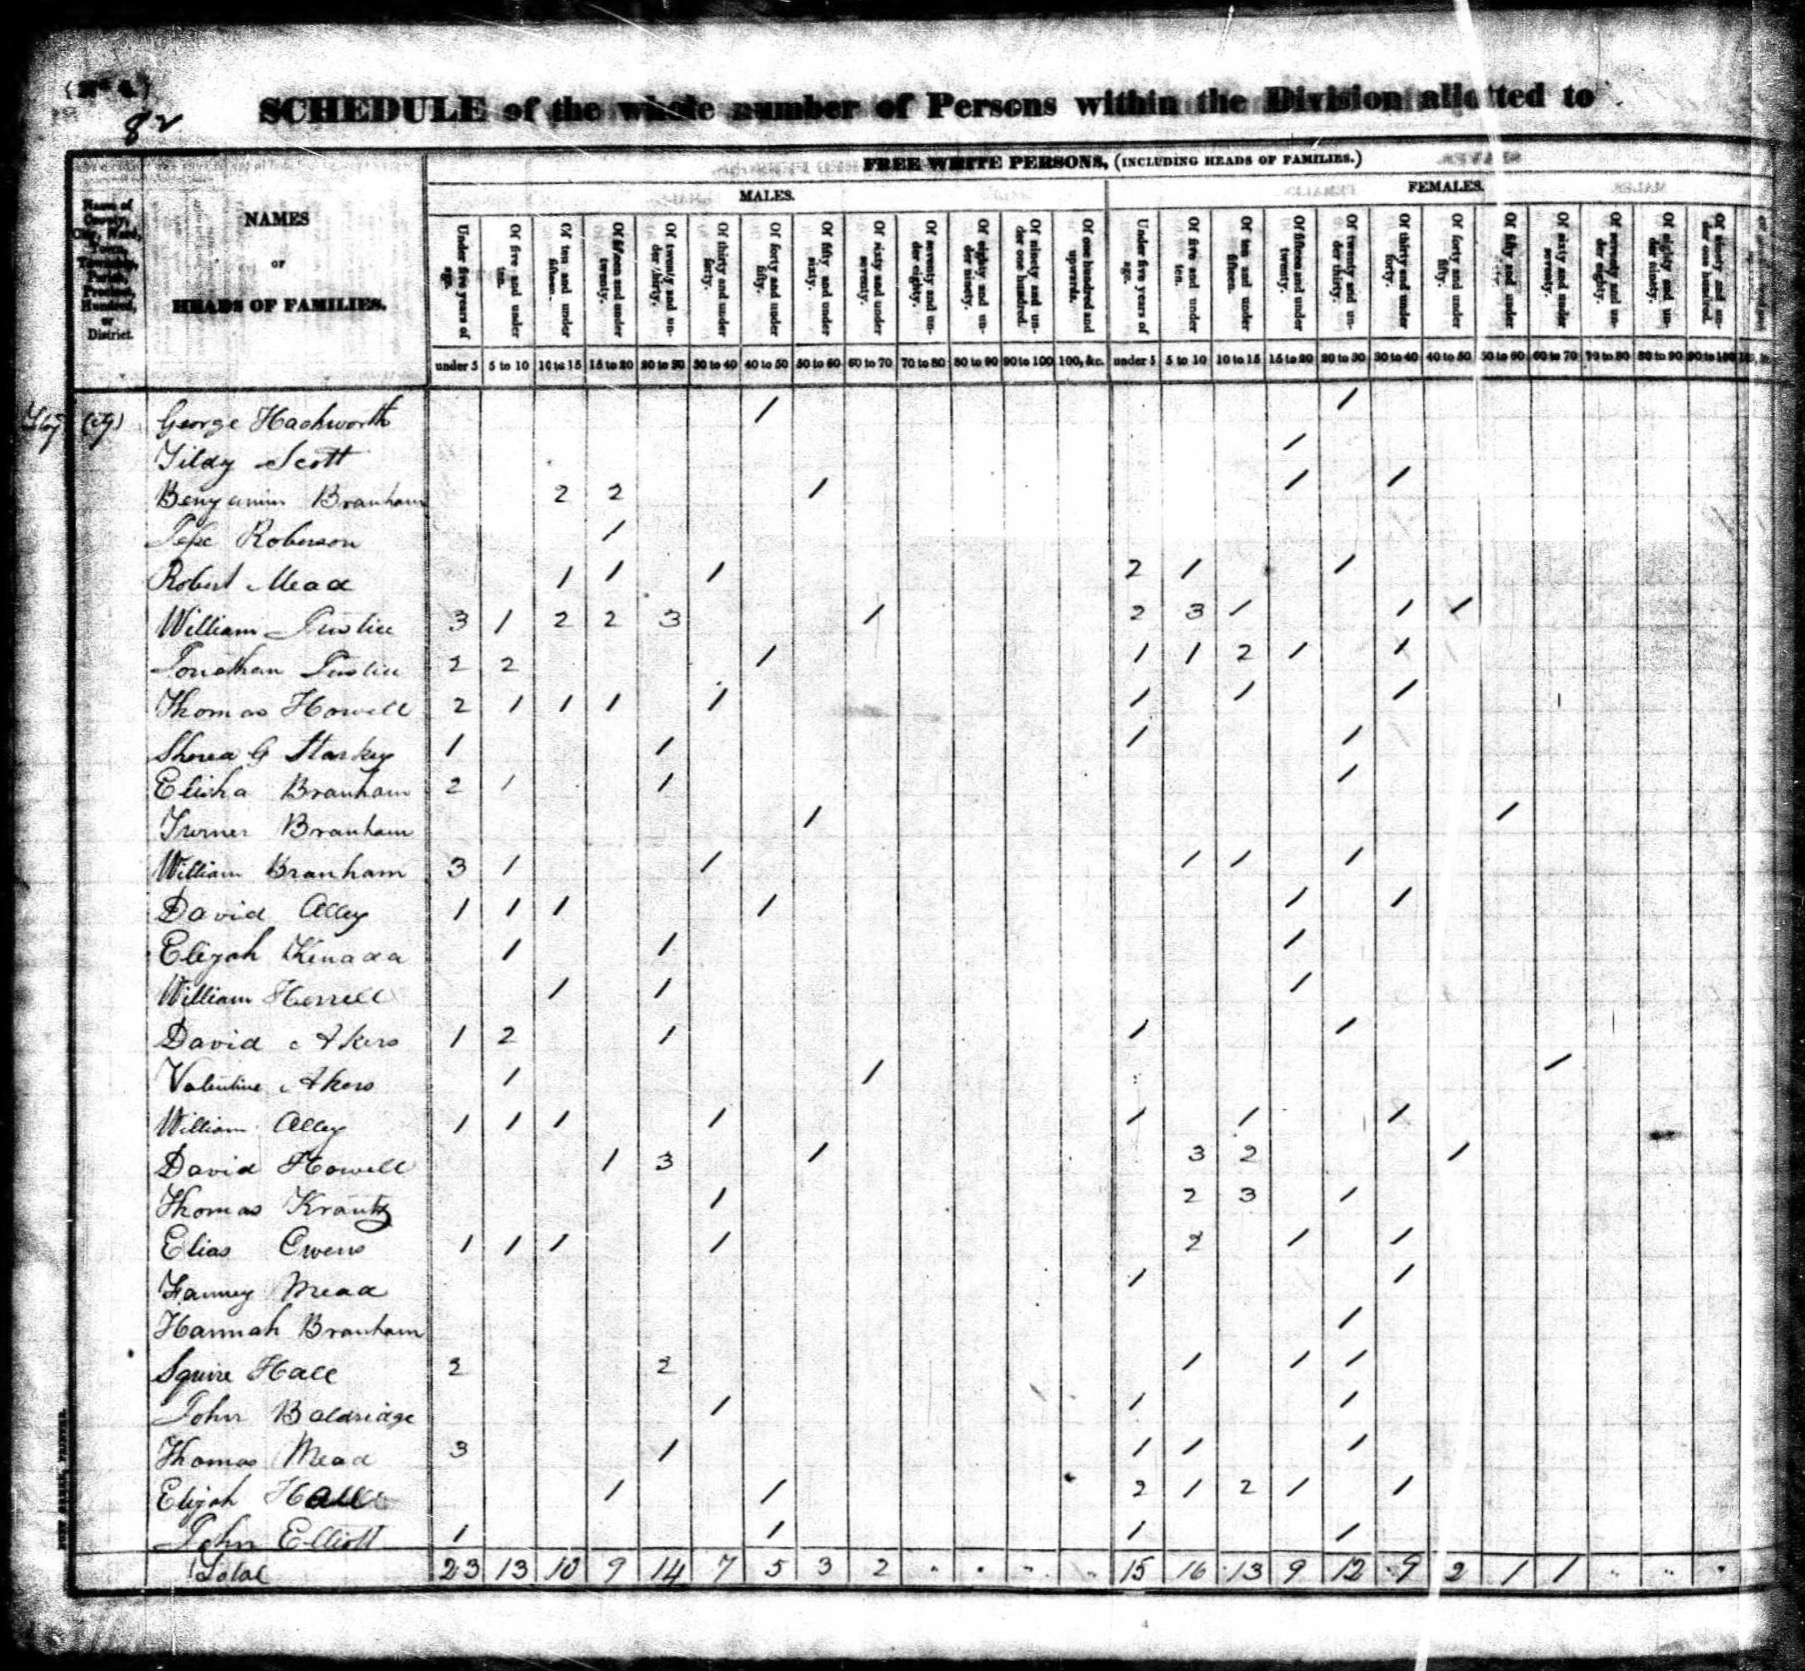 82
SCHEDULE of the whole number of Persons within the Division allotted to
FREE WHITE PERSONS, (INCLUDING HEADS OF FAMILIES.)
MALES. FEMALES.
Name of County, City, Ward, Town, Township, Parish, Precinct, Hundred, or District.
NAMES
OR
HEADS OF FAMILIES.
Under five years of age. Of five and under ten. Of ten and under fifteen. Of fifteen and under twenty. Of twenty and under thirty. Of thirty and under forty. Of forty and under fifty. Of fifty and under sixty. Of sixty and under seventy. Of seventy and under eighty. Of eighty and under ninety. Of ninety and under one hundred. Of one hundred and upwards. Under five years of age. Of five and under ten. Of ten and under fifteen. Of fifteen and under twenty. Of twenty and under thirty. Of thirty and under forty. Of forty and under fifty. Of fifty and under Of sixty and under seventy. Of seventy and under eighty. Of eighty and under ninety. Of ninety and under one hundred.
under 5 5 to 10 10 to 15 15 to 20 20 to 30 30 to 40 40 to 50 50 to 60 60 to 70 70 to 80 80 to 90 90 to 100 100, &c. under 5 5 to 10 10 to 15 15 to 20 20 to 30 30 to 40 40 to 50 50 to 60 60 to 70 70 to 80 80 to 90 90 to 100
George Hackworth 1 1
Tildy Scott 1
Benjamin Branham 2 2 1 1 1
Roberson 1
Robert Mead 1 1 1 2 1 1
William Justice 3 1 2 2 3 1 2 3 1 1 1
Jonathan Justice 2 2 1 1 1 2 1 1
Thomas Howell 2 1 1 1 1 1 1 1
G Starkey 1 1 1 1
Elisha Branham 2 1 1 1
Turner Branham 1 1
William Branham 3 1 1 1 1 1
David Alley 1 1 1 1 1 1
Elijah 1 1 1
William Herrell 1 1 1
David Akers 1 2 1 1 1
Valentine Akers 1 1 1
William Alley 1 1 1 1 1 1 1
David Howell 1 3 1 3 2 1
Thomas Krantz 1 2 3 1
Elias Owens 1 1 1 1 2 1 1
Fanney Mead 1 1
Hannah Branham 1
Squire Hall 2 2 1 1 1
John Baldridge 1 1 1
Thomas Mead 3 1 1 1 1
Elijah Hall 1 1 2 1 2 1 1
John Elliott 1 1 1 1
Total 23 13 10 9 14 7 5 3 2 15 16 13 9 12 9 2 1 1